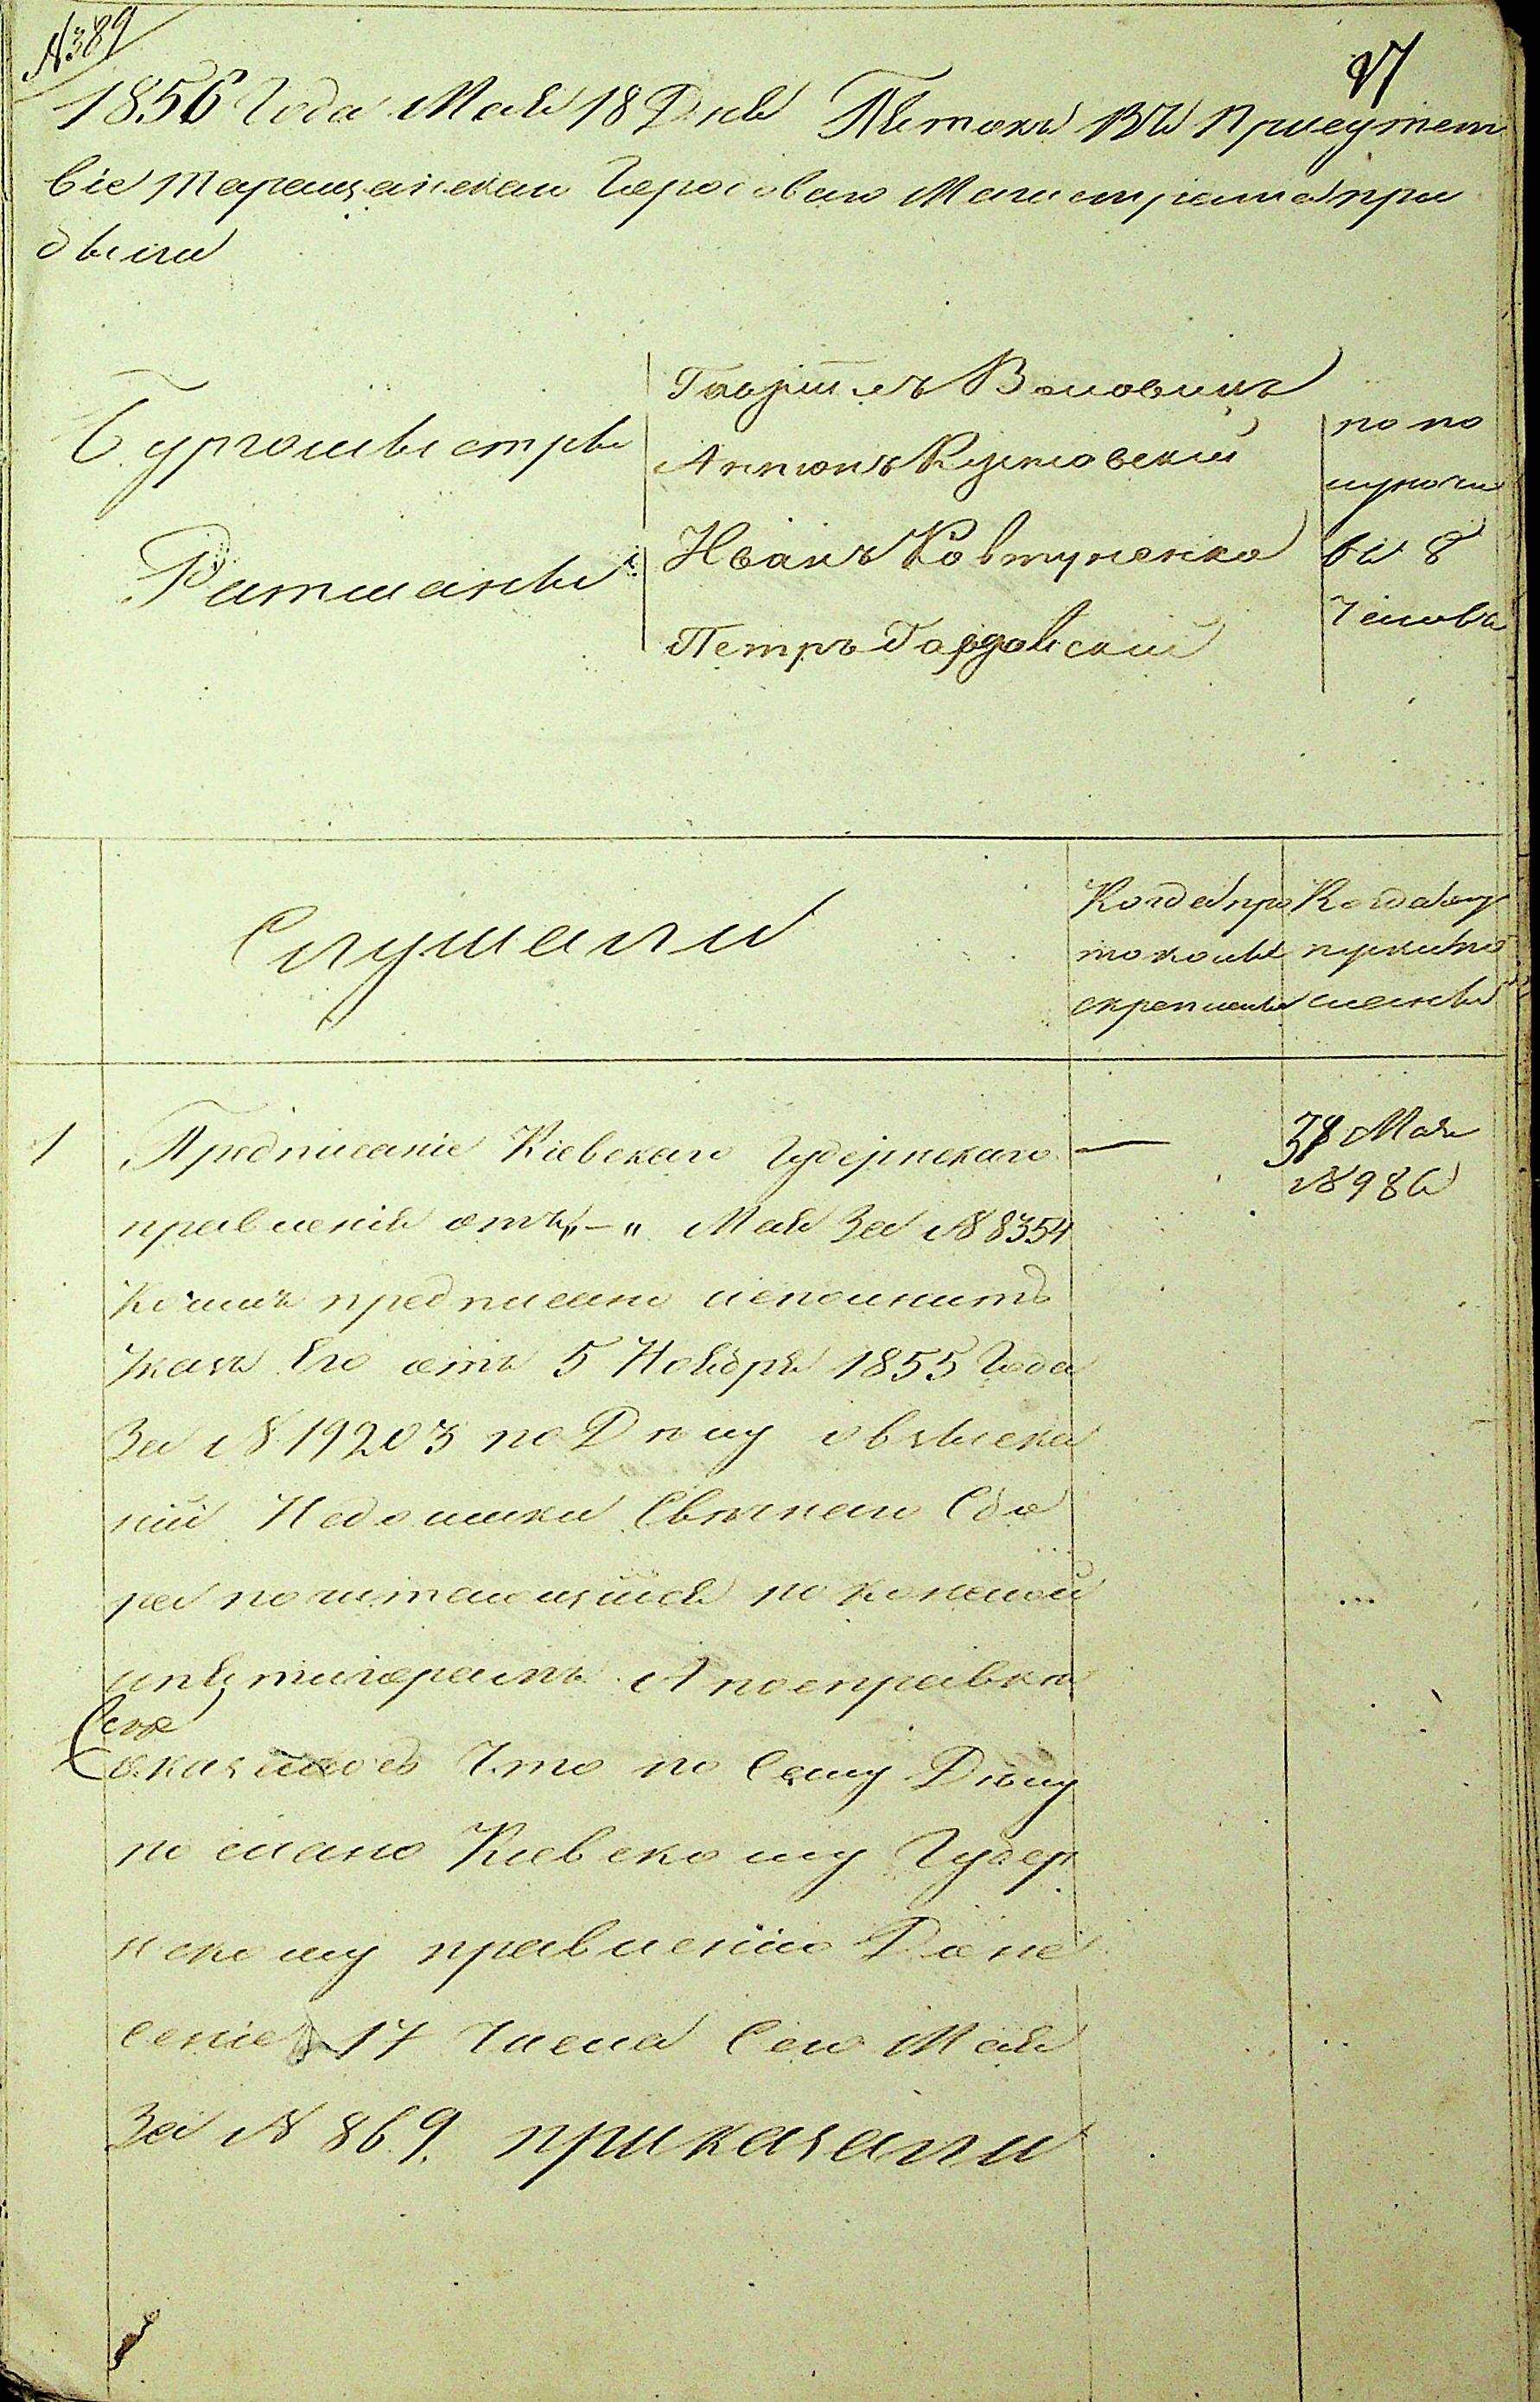 № 389
1856 Года Мая 18 Дня Пятокъ Въ Присутст
віе Таращанскаго Городоваго Магистрата при
были
Бургомистры
Гавріилъ Воловикъ
Антонъ
Ратманы
Иванъ Ковтуненко
Петръ Гордовскій
по по
луночи
въ 8
часовъ
Слушали
Когда про
токолы
скреплены
Когда
1
Предписаніе Кіевскаго Губернскаго
правленія отъ „—„ Мая За № 8354
Коимъ предписано исполнить
Указъ Его отъ 5 Ноября 1855 Года
За № 19203 по Дѣлу о взыска
ніи Недоимки Свѣчнаго Сбо
ра почитающейся по
А по справкѣ
оказалось Что по Сему Дѣлу
послано Кіевскому Губер
нскому правленію Доне
сеніе 17 Числа Сего Мая
За № 869. приказали
Мая
№ 986